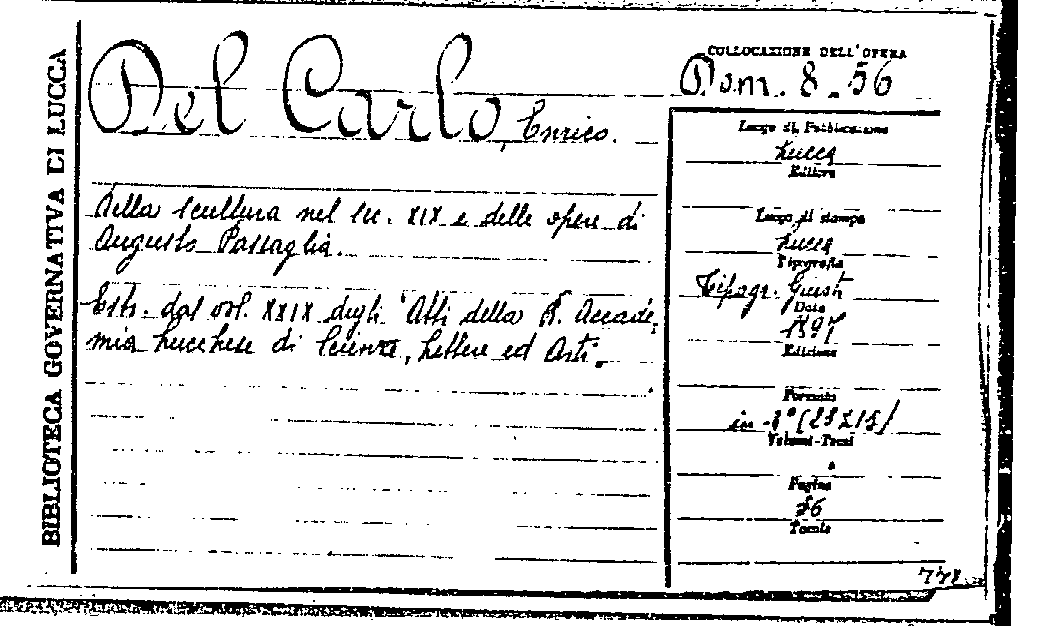 BIBLIOTECA GOVERNATIVA DI LUCCA
Del Carlo, Enrico.
Della scultura nel sec. XIX e delle opere di
Augusto Passaglia.
Estr. dal vol. XXIX degli "Atti della R. Accade,
mia Lucchese di Scienze, Lettere ed Arti.
COLLOCAZIONE DELL'OPERA
Dom. 8.56
Luogo di Pubblicazione
Lucca
Editore
Luogo di stampa
Lucca
Tipografia
Tipogr. Giusti
Data
1897
Edizione
Formato
in-8° (23X15)
Volumi-Tomi
Pagine
Tavole